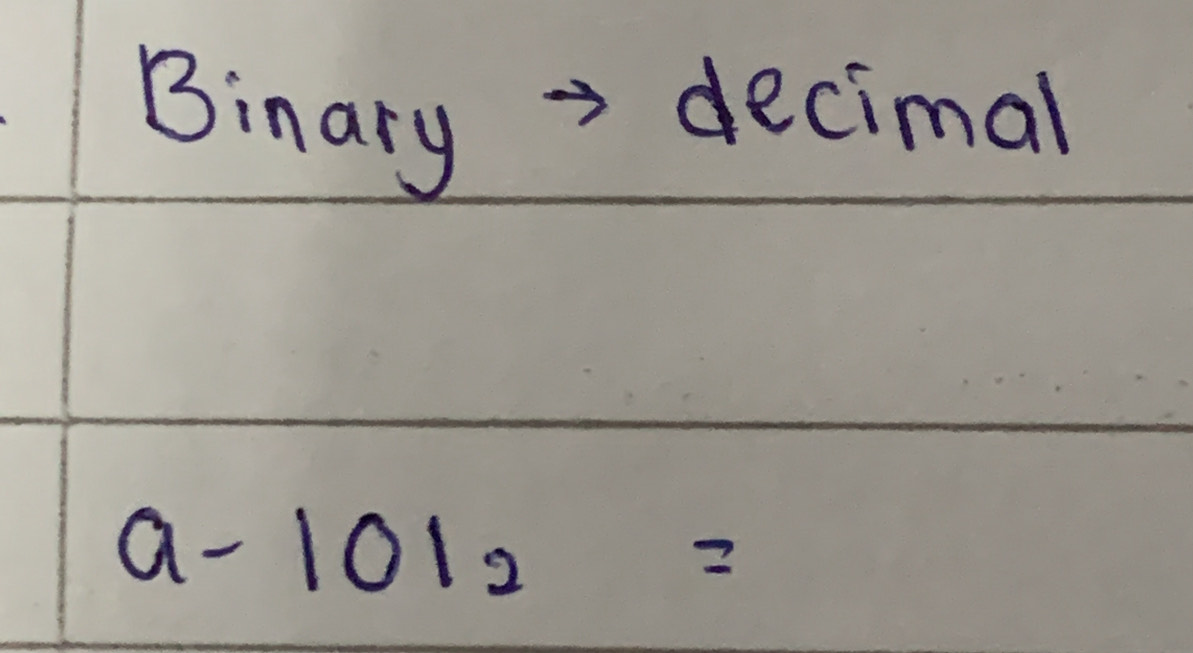 Binary → decimal
a- 101₂ =